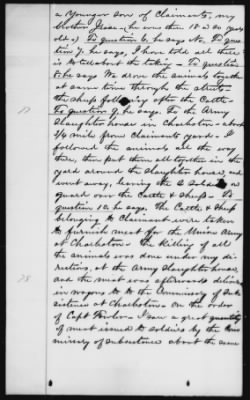 a younger son of Claimants, my
brother Jesse - he was then 18 or 20 years
old. To question 6, he says No. To ques
tion 7, he says, I have told all there
is to tell about the taking - To question
8, he says We drove the animals together
at same time through the streets -
the sheep following after the Cattle -
17
To question 9, he says. To the Army
Slaughter house in Charleston - about
3/4 mile from Claimants yard. I
followed the animals all the way
there, then put them all together in the
yard around the slaughter house, and
went away, leaving the soldiers as
guard over the Cattle & sheep - To
question 10, he says, The Cattle & Sheep
belonging to Claimant were taken
to furnish meat for the Union Army
at Charleston. The killing of all
the animals was done under my di-
rections, at the Army slaughter house,
18
and the meat was afterwards deliver
in wagons to the Commissary of Sub
sistence at Charleston on the order
of Capt
I saw a great quantity
of meat issued to soldiers by the Com
missary of subsistence about the same